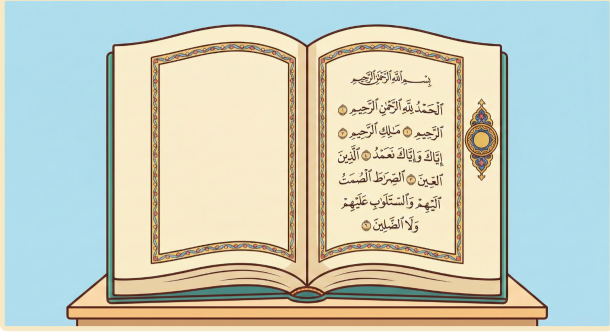 بِسْمِ اللَّهِ الرَّحْمَٰنِ الرَّحِيمِ
اَلْحَمْدُ لِلَّهِ الرَّحْمَٰنِ الرَّحِيمِ
الرَّحِيمِ مَٰلِكِ الرَّحِيمِ
إِيَّاكَ وَإِيَّاكَ نَعَمْدُ الَّذِينَ
العِينَ الصِّرَٰطَ الْصُمَتُ
آلَيْهِمْ وَالسَّتَلَوٰبِ عَلَيْهِمْ
وَلَا الضَّلِينَ